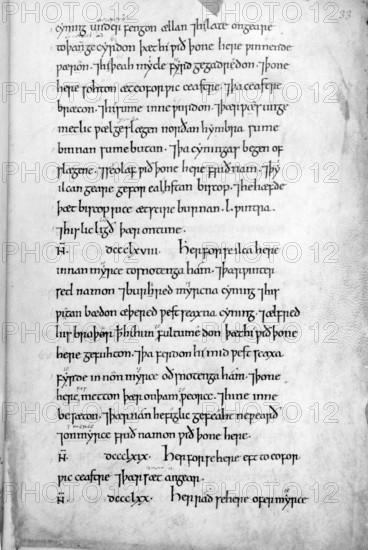 33
cyning underfengon ællan ⁊ hi late on geare
to þan gecyrdon þæt hi wið þone here winnende
wæron. ⁊ hi þeah mycle fyrd gegadredon. ⁊ þone
here sohton æt eoforwic ceastre. ⁊ þa ceastre
bræcon. ⁊ hi sume inne wurdon. ⁊ þær wæs unge
metlic wæl geslegen norðan hymbra sume
binnan sume butan. ⁊ þa cyningas begen of
slagene. ⁊ seo laf wið þone here frið nam. ⁊ þy
ilcan geare gefor ealhstan bisceop. ⁊ he hæfde
þæt bisceoprice æt scire burnan .l. wintra
⁊ his lic ligð þær on tune.
AN. dccclxviii. Her for se ilca here
innan myrce to snotengaham. ⁊ þær winter
setl namon ⁊ burhred myrcna cyning ⁊ his
witan bædon æþered westseaxna cyning ⁊ ælfred
his broþor þ hi him fultumedon þæt hi wið þone
here gefuhton. ⁊ þa ferdon hi mid westseaxna
fyrde innon myrce oð snotengaham. ⁊ þone
here metton þær on þam weorce. ⁊ hine inne
besæton. ⁊ þær nan hefiglic gefeoht ne wearð
⁊ on myrce frið namon wið þone here.
AN. dccclxix. Her for se here eft to eofor
wic ceastre ⁊ þær sæt an gear.
AN. dccclxx. Her rad se here ofer myrce